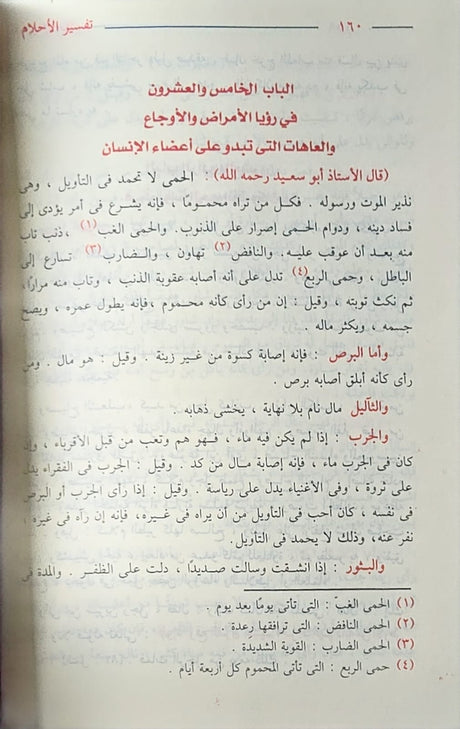 ١٦٠ تفسير الأحلام
الباب الخامس والعشرون
في رؤيا الأمراض والأوجاع
والعاهات التى تبدو على أعضاء الإنسان
(قال الأستاذ أبو سعيد رحمه الله) : الحمى لا تحمد فى التأويل ، وهى
نذير الموت ورسوله . فكل من تراه محمومًا ، فإنه يشرع فى أمر يؤدى إلى
فساد دينه ، ودوام الحمى إصرار على الذنوب. والحمى الغب(١) ،ذنب تاب
منه بعد أن عوقب عليه. والنافض(٢) تهاون ، والضارب(٣) تسارع إلى
الباطل ، وحمى الربع(٤) تدل على أنه أصابه عقوبة الذنب ، وتاب منه مرارًا،
ثم نكث توبته ، وقيل : إن من رأى كأنه محموم ،فإنه يطول عمره ، ويصح
جسمه ، ويكثر ماله .
وأما البرص : فإنه إصابة كسوة من غير زينة . وقيل : هو مال . ومن
رأى كأنه أبلق أصابه برص .
والثآليل مال نام بلا نهاية ، يخشى ذهابه .
والجرب : إذا لم يكن فيه ماء ، فهو هم وتعب من قبل الأقرباء ، وإن
كان فى الجرب ماء ، فإنه إصابة مال من كد . وقيل : الجرب فى الفقراء يدل
على ثروة ، وفى الأغنياء يدل على رياسة . وقيل : إذا رأى الجرب أو البرص
فى نفسه ، كان أحب فى التأويل من أن يراه فى غيره، فإنه إن رآه فى غيره ،
نفر عنه، وذلك لا يحمد فى التأويل.
والبثور : إذا انشقت وسالت صديدًا ، دلت على الظفر . والمدة فى
(١) الحمى الغبّ : التى تأتى يومًا بعد يوم .
(٢) الحمى النافض : التى ترافقها رعدة .
(٣) الحمى الضارب : القوية الشديدة .
(٤) حمى الربع : التى تأتى المحموم كل أربعة أيام .